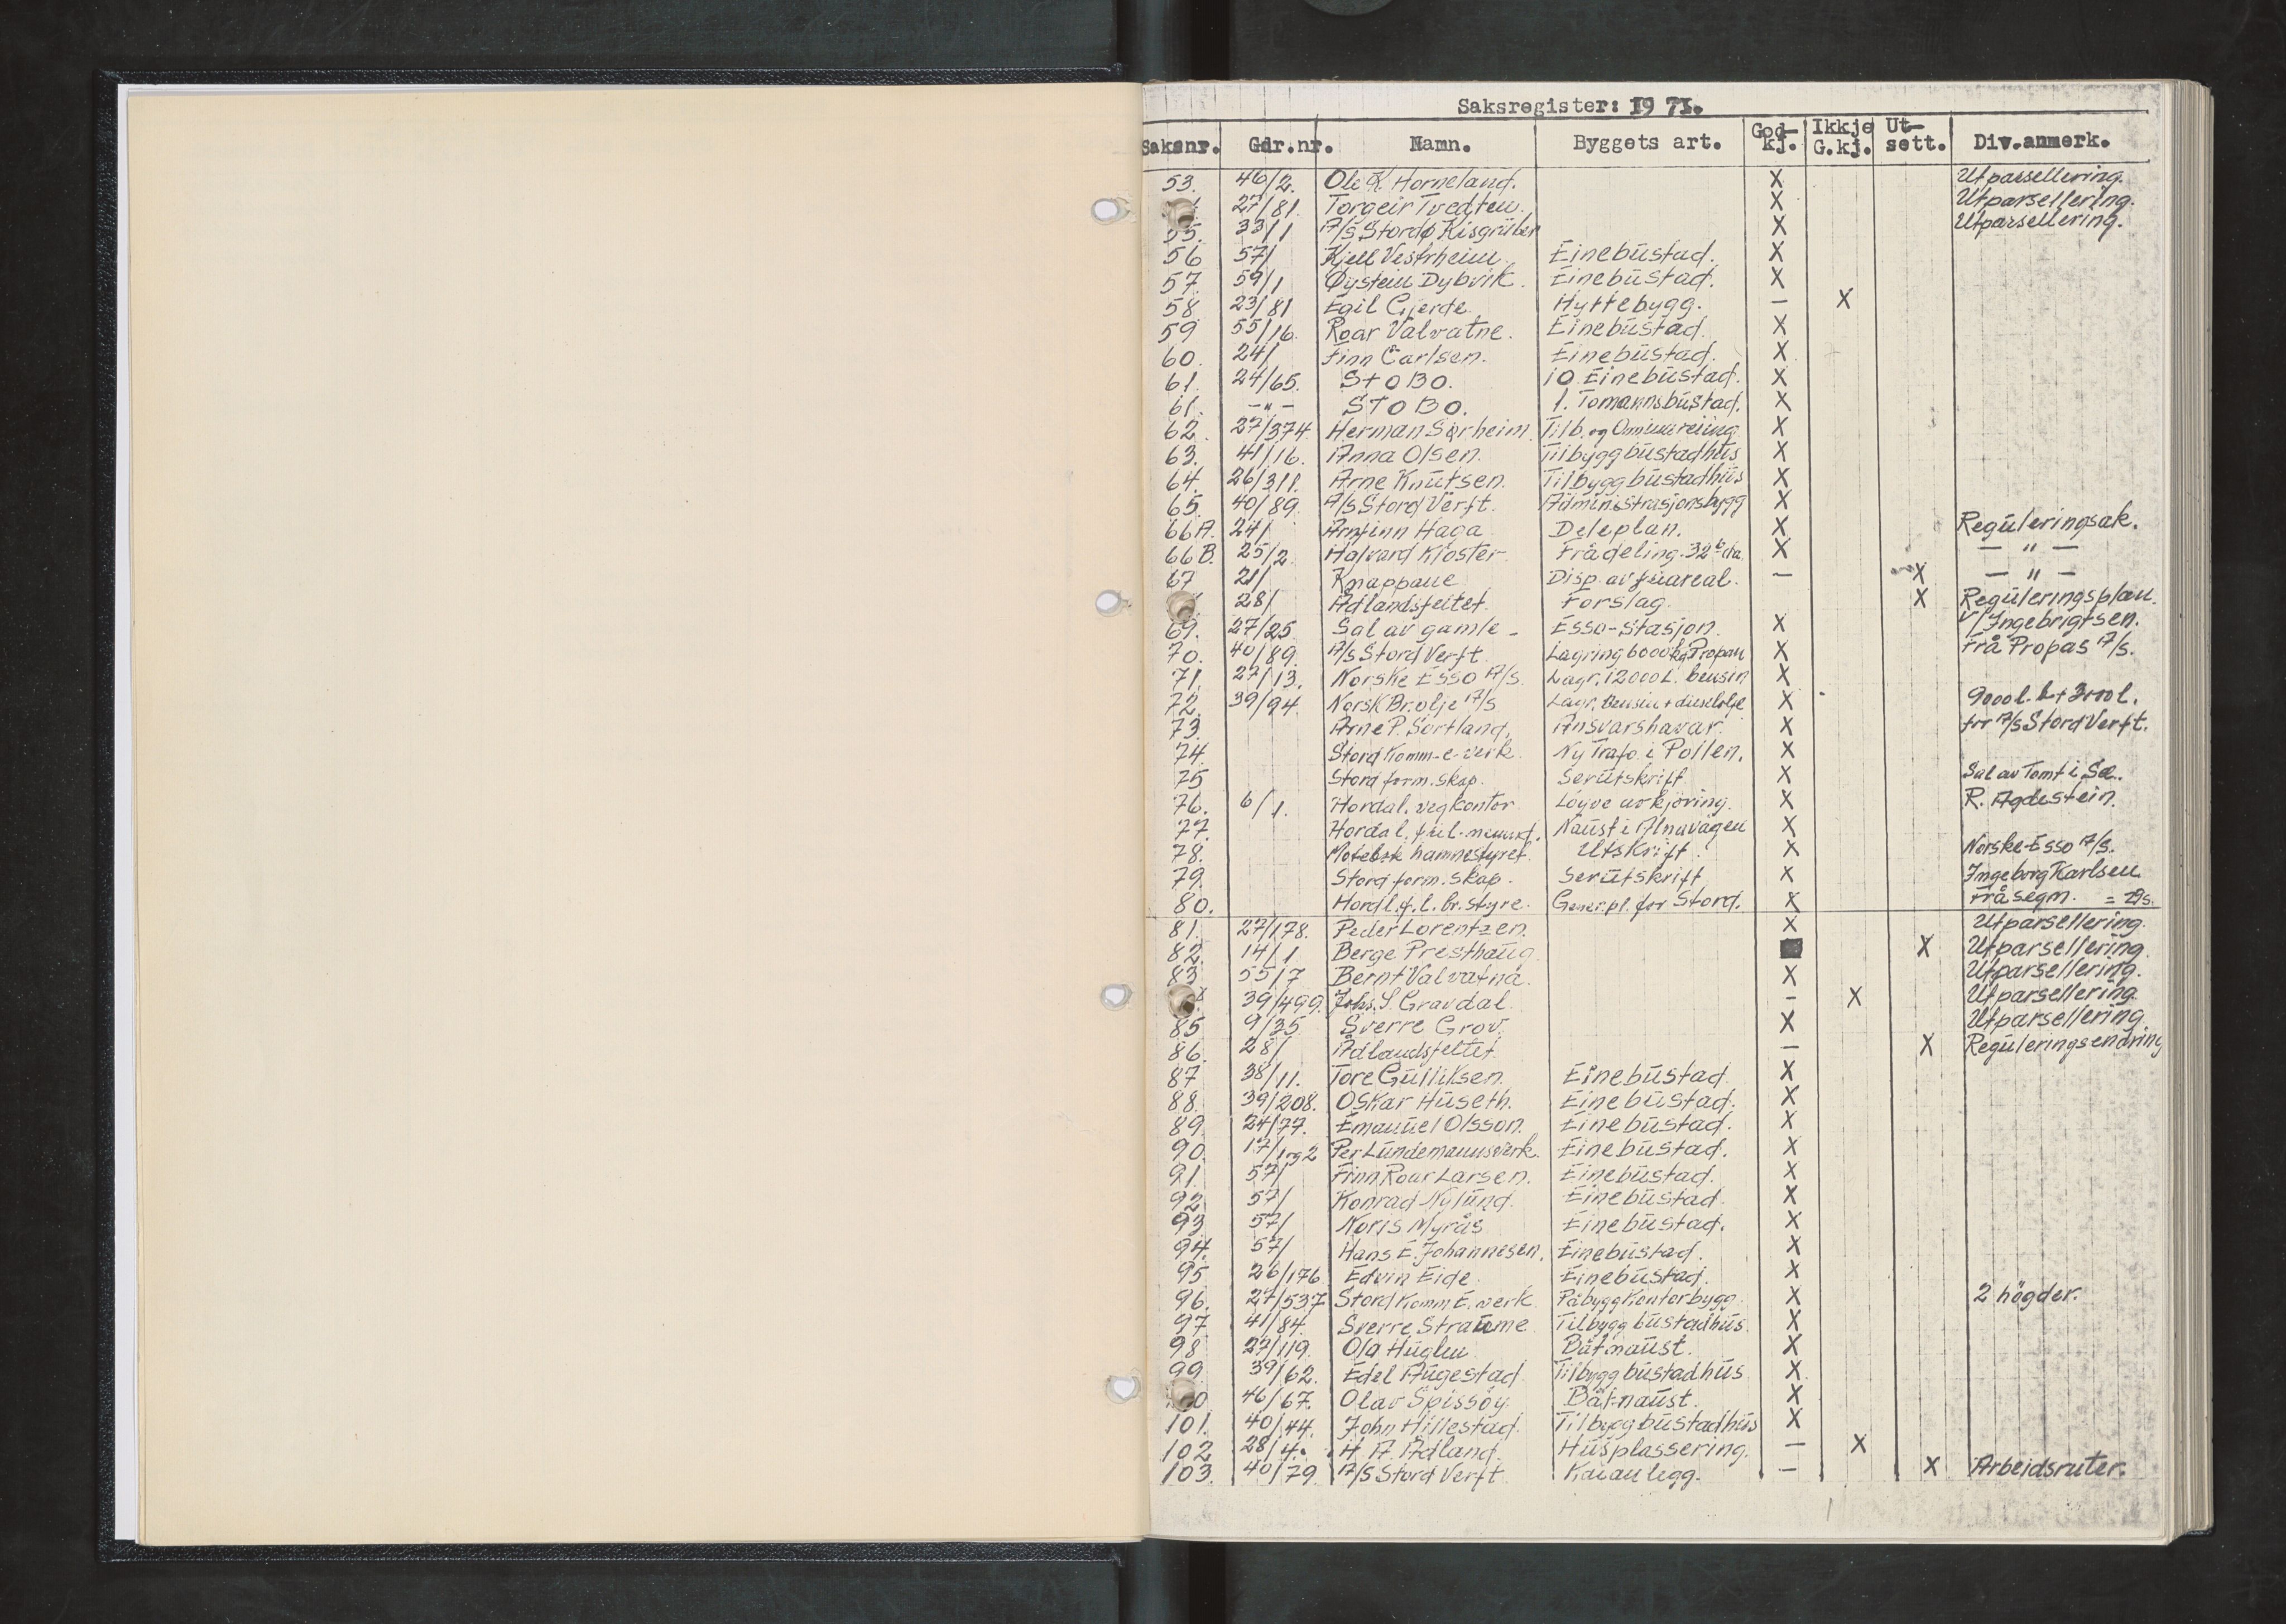 Saksregister: 1971.
Saksnr. Gdr.nr. Namn. Byggets art. God-kj. Ikkje G.kj. Ut-sett. Div.anmerk.
53. 46/2. Ole K. Horneland. X Utparsellering.
27/81. Torgeir Tvedten. X Utparsellering.
55. 33/1 A/S Stordø Kisgrüber X Utparsellering.
56 57/ Kjell Vestrheim. Einebüstad. X
57 59/1 Øystein Dybvik. Einebüstad. X
58 23/81 Egil Gjerde. Hyttebygg. — X
59 55/16. Roar Valvatne. Einebüstad. X
60. 24/ Finn Carlsen. Einebüstad. X
61. 24/65. STOBO. 10 Einebüstad. X
61. —"— STOBO. 1. Tomannsbüstad. X
62. 27/374. Herman Sørheim. Tilb. og Ominnreiing X
63. 41/16. Anna Olsen. Tilbygg büstadhüs X
64. 26/311. Arne Knütsen. Tilbygg büstadhüs X
65. 40/89. A/S Stord Verft. Administrasjonsbygg X
66A. 24/ Arnfinn Haga Deleplan. X Regüleringsak.
66B. 25/2. Halvard Kloster. Frådeling. 32 da. X — " —
67 21/ Knappane Disp. av füareal. — X — " —
28/ Ådlandsfeltet. Forslag. X Regüleringsplan.
69. 27/25. Sal av gamle - Esso-Stasjon. X v/Ingebrigtsen.
70. 40/89. A/S Stord Verft. Lagring 6000 kg Propan X Frå Propas A/S.
71. 27/13. Norske Esso A/S. Lagr. 12000 L. bensin X
72. 39/94. Norsk Br.olje A/S Lagr. bensin + dieselolje X 9000 l. b + 3000 l.
73. Arne P. Sortland. Ansvarshavar. X for A/S Stord Verft.
74. Stord Komm-e-verk. Ny Trafo i Pollen. X
75 Stord form.skap. Serütskrift X Sal av Tomt i Sæ.
76. 6/1. Hordal. vegkontor Löyve avkjöring. X R. Agdestein.
77. Hordal. fril.-nemnd. Naüst i Ålnavågen X
78. Hamnestyret. Utskrift. X Norske-Esso A/S.
79. Stord form.skap. Serütskrift X Ingeborg Karlsen
80. Hordl.f.l.br.styre. Gener.pl. for Stord. X Frå segm. = 29s.
81. 27/178. Peder Lorentzen. X Utparsellering.
82. 14/1 Berge Presthaüg. X Utparsellering.
83 55/7 Bernt Valvatna. X Utparsellering.
39/499. Johs. S. Gravdal. — X Utparsellering.
85 9/35 Sverre Grov. X Utparsellering.
86. 28/ Ådlandsfeltet. — X Regüleringsendring
87 38/11. Tore Gülliksen. Einebüstad. X
88. 39/208. Oskar Hüseth. Einebüstad. X
89 24/77. Emanüel Olsson. Einebüstad. X
90. 17/1 og 2 Per Lündemannsverk. Einebüstad. X
91. 57/ Finn Roar Larsen. Einebüstad. X
92 57/ Konrad Nylünd. Einebüstad. X
93 57/ Noris Myrås Einebüstad. X
94. 57/ Hans E. Johannesen. Einebüstad. X
95 26/176 Edvin Eide. Einebüstad. X
96. 27/537 Stord Komm E. verk Påbygg Kontorbygg. X 2 högder.
97. 41/84. Sverre Straüme Tilbygg büstadhüs. X
98 27/119. Ola Hüglen Båtnaüst. X
99. 39/62. Edel Aügestad Tilbygg büstadhüs X
100 46/67. Olav Spissöy. Båt-naüst. X
101. 40/44. John Hillestad. Tilbygg büstadhüs X
102 28/4. H A. Ådland. Hüsplassering. — X
103. 40/79. A/S Stord Verft. Kaianlegg. — X Arbeidsruter.